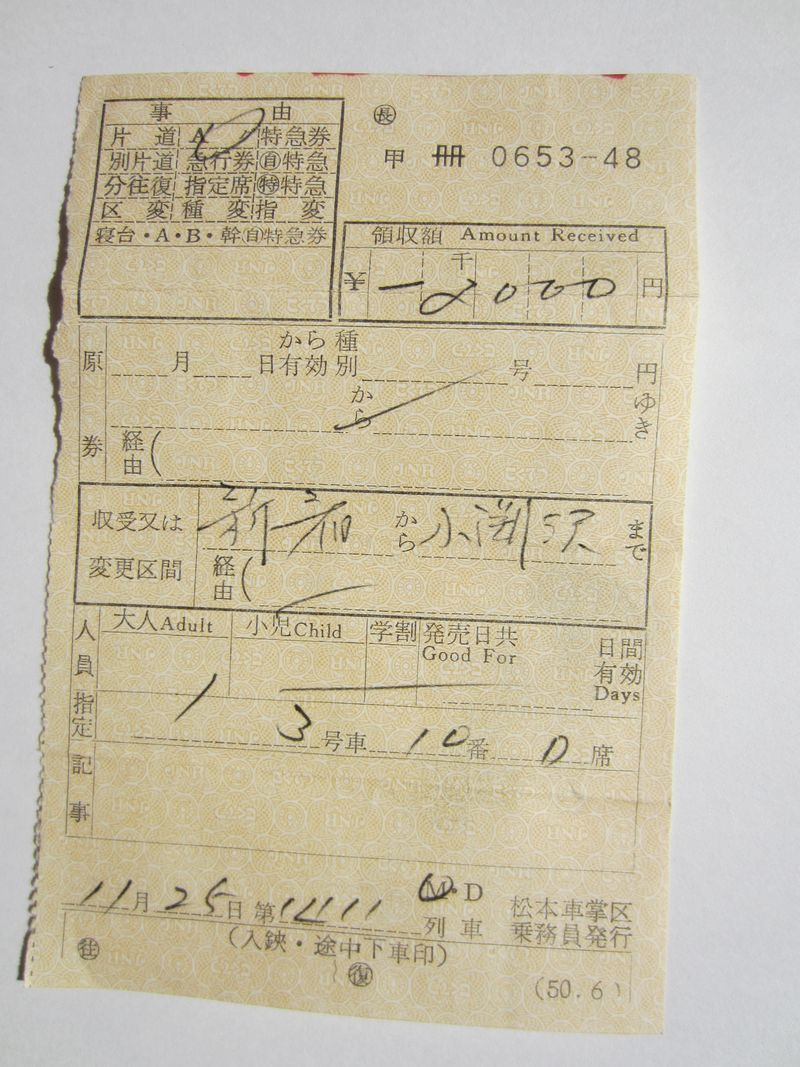 事 由
片道 A 特急券
別片道 急行券 ㊀特急
分往復 指定席 ㊕特急
区変 種変 指変
寝台・A・B・幹 自特急券
長
甲 冊 0653-48
領収額 Amount Received
千
¥ -2000 円
原券
月 日から有効 種別 号 円
から ゆき
経由(
収受又は変更区間
新宿 から 小渕沢 まで
経由(
人員 大人Adult 小児Child 学割 発売日共 Good For 日間有効 Days
1
指定 3号車 10番 D席
記事
11月25日 第1411 M・D 列車 松本車掌区乗務員発行
(入鋏・途中下車印)
往 復
(50.6)